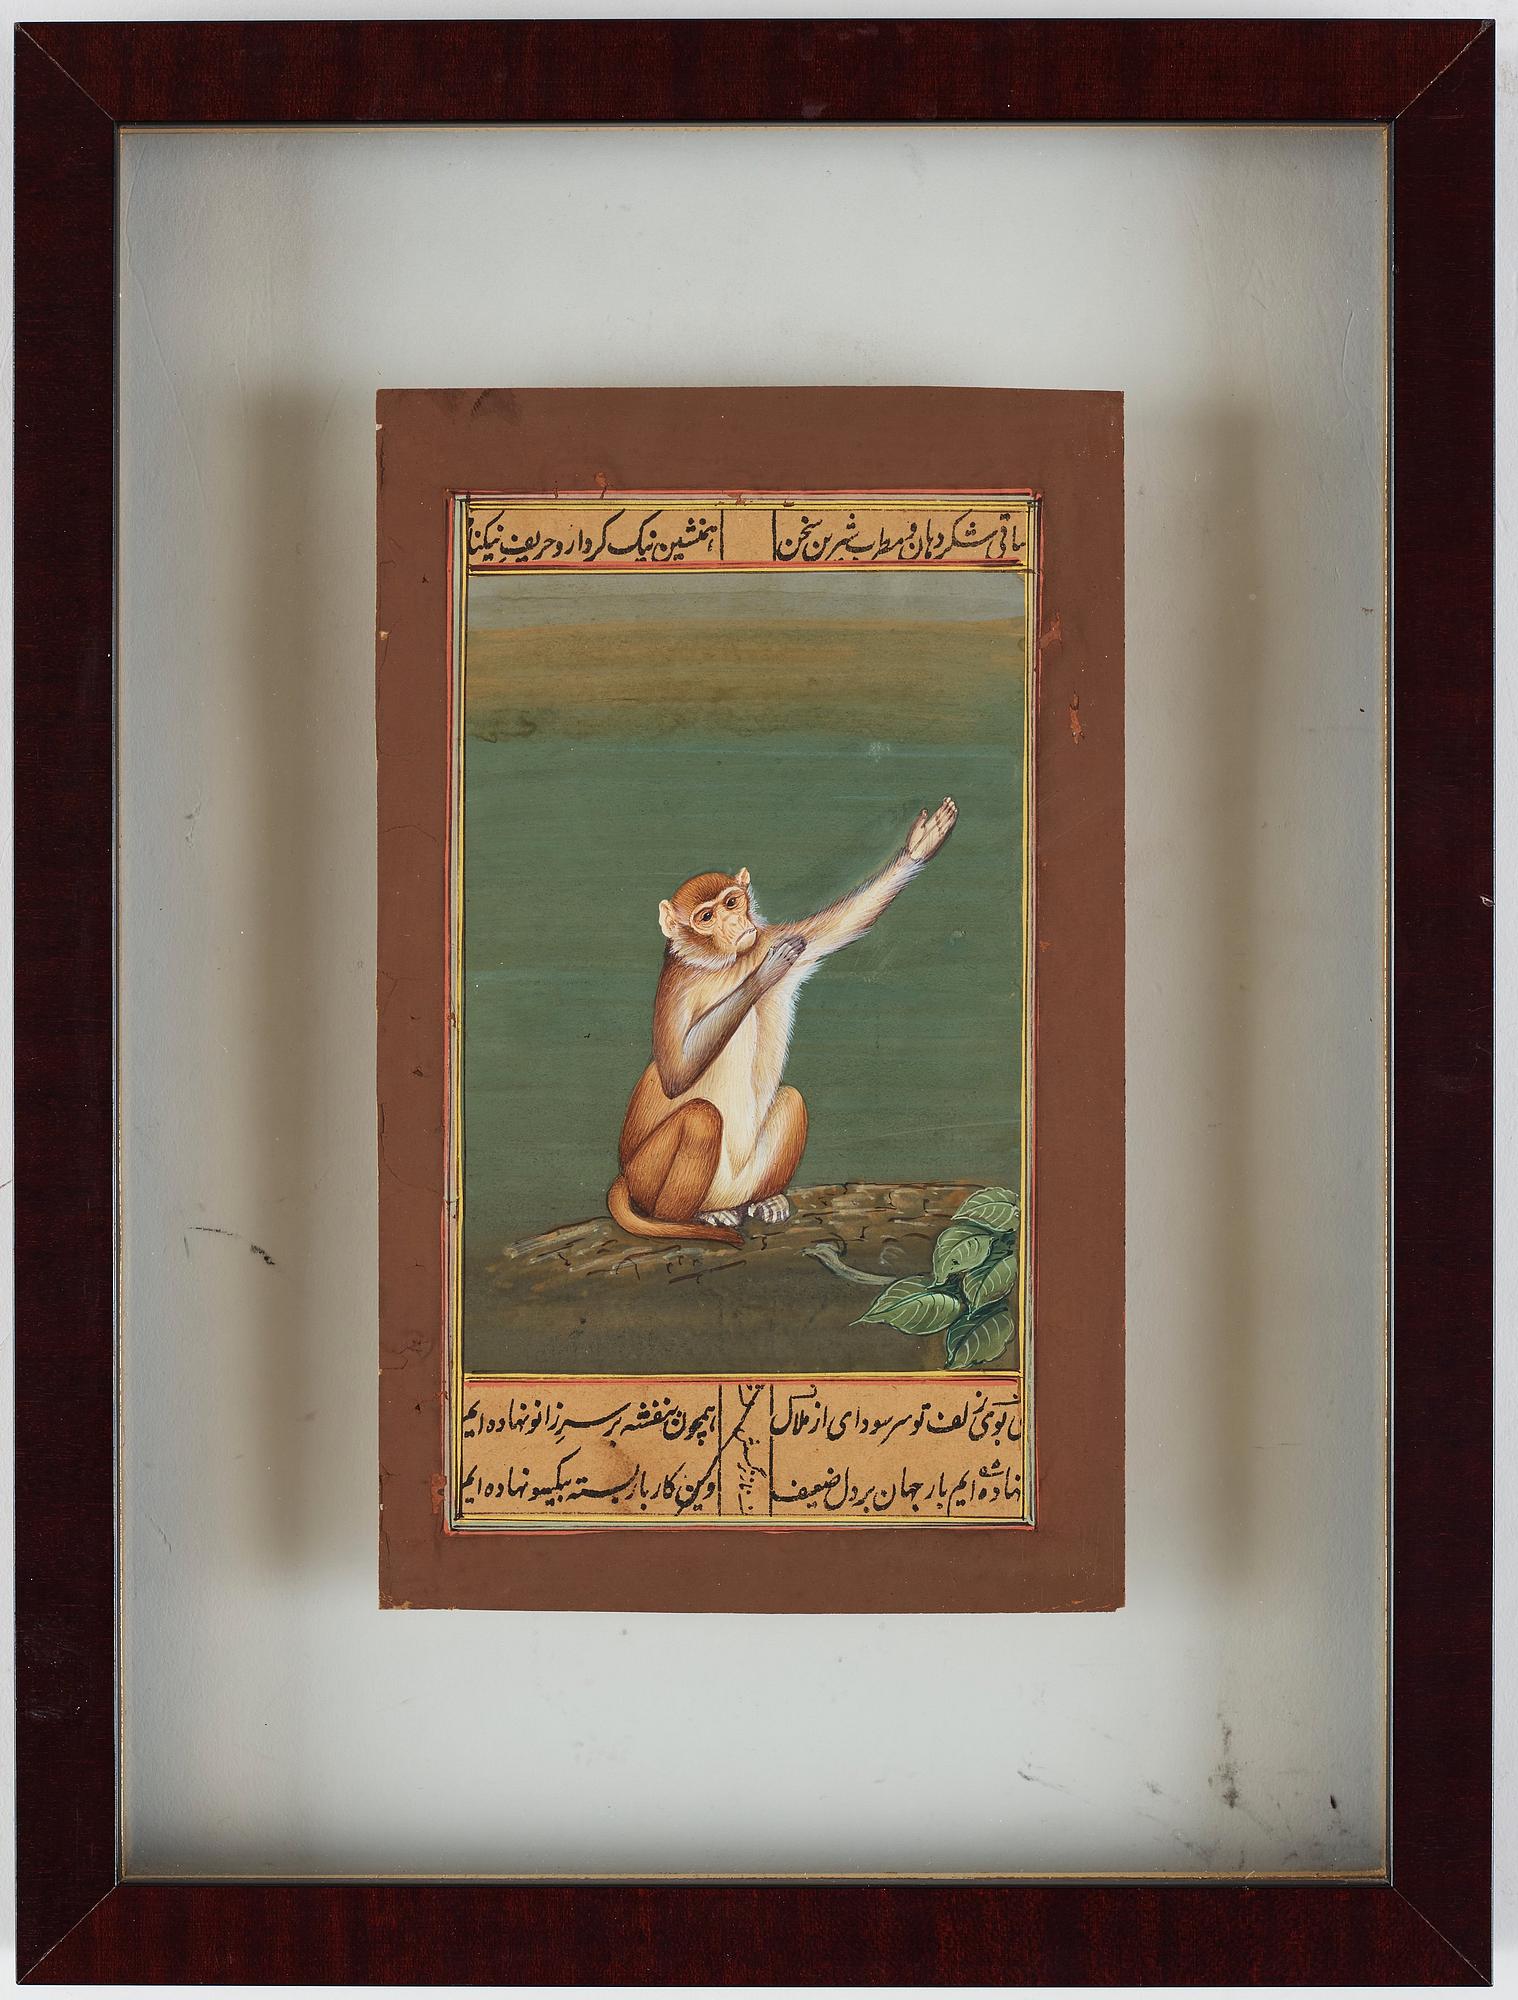 ساقی شکر دهان و مطرب شیرین سخن همنشین نیک کردار و حریف نیکنا
بوی زلف تو سر سودای از ملال همچون بنفشه بر سر زانو نهاده ایم
نهاده ایم بار جهان بر دل ضعیف وین کار بار بسته بیکسو نهاده ایم